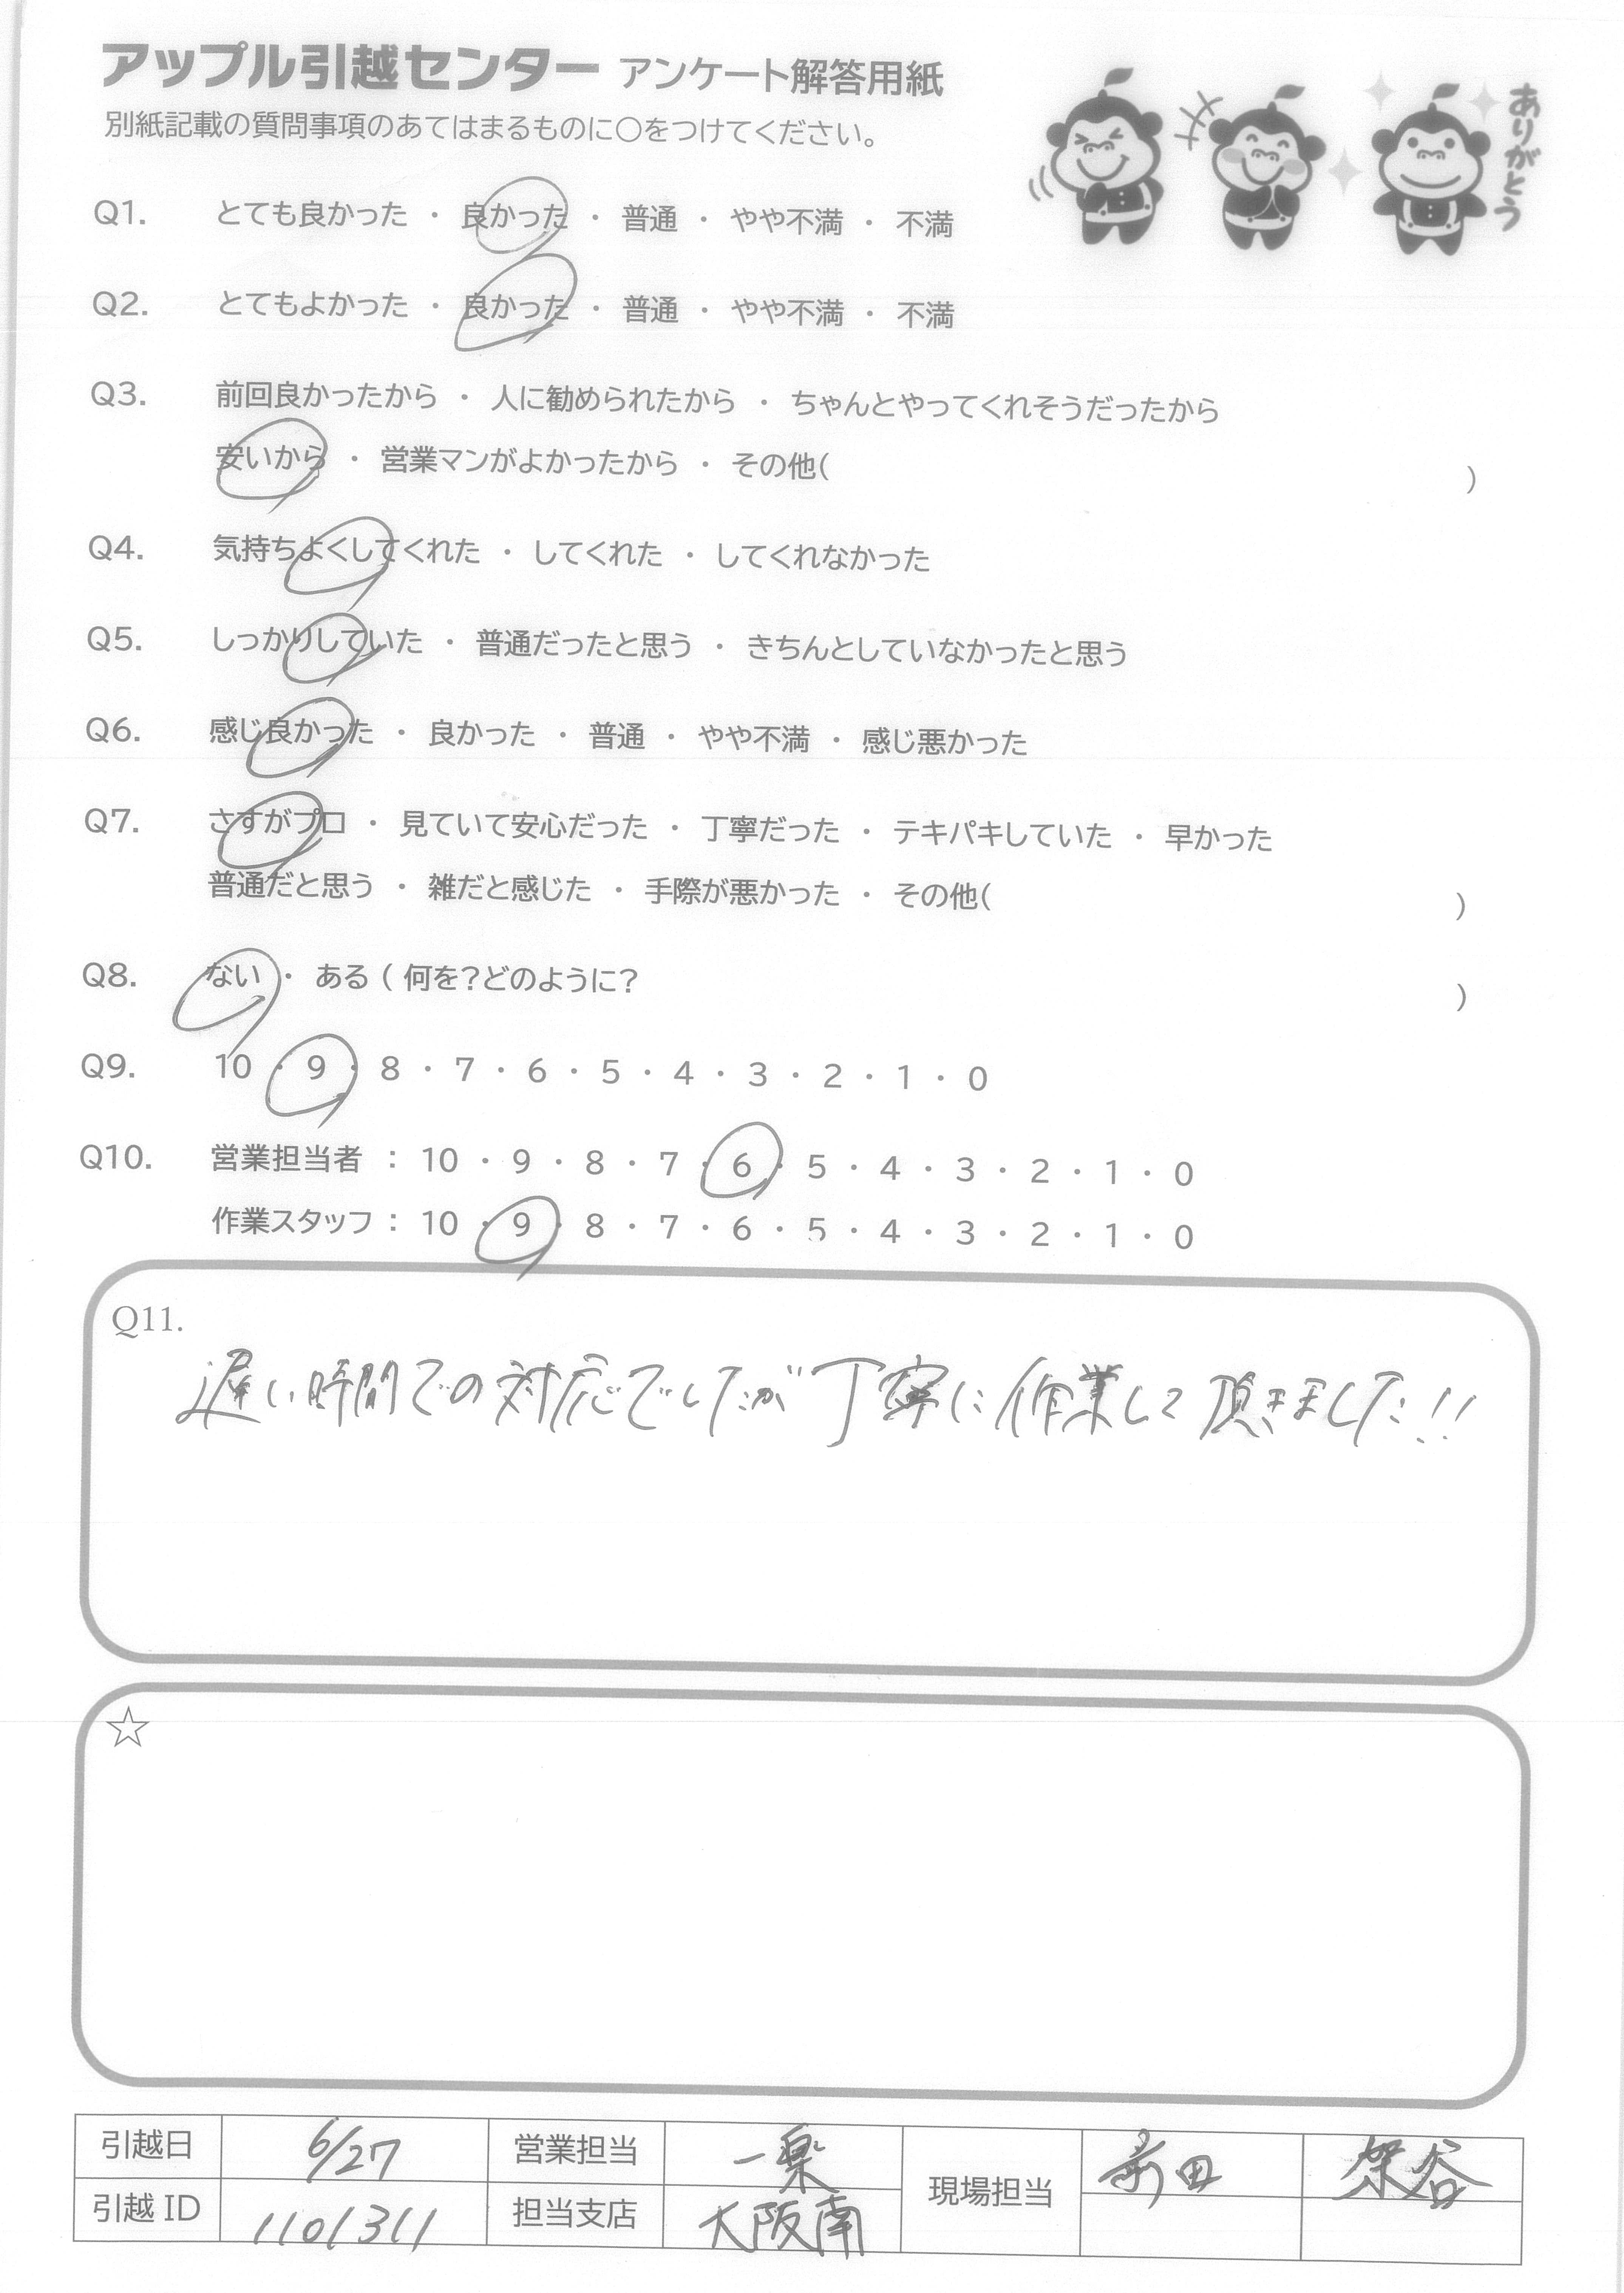 アップル引越センター アンケート解答用紙
別紙記載の質問事項のあてはまるものに○をつけてください。
ありがとう
Q1. とても良かった ・ 良かった ・ 普通 ・ やや不満 ・ 不満
Q2. とてもよかった ・ 良かった ・ 普通 ・ やや不満 ・ 不満
Q3. 前回良かったから ・ 人に勧められたから ・ ちゃんとやってくれそうだったから
安いから ・ 営業マンがよかったから ・ その他( )
Q4. 気持ちよくしてくれた ・ してくれた ・ してくれなかった
Q5. しっかりしていた ・ 普通だったと思う ・ きちんとしていなかったと思う
Q6. 感じ良かった ・ 良かった ・ 普通 ・ やや不満 ・ 感じ悪かった
Q7. さすがプロ ・ 見ていて安心だった ・ 丁寧だった ・ テキパキしていた ・ 早かった
普通だと思う ・ 雑だと感じた ・ 手際が悪かった ・ その他( )
Q8. ない ・ ある ( 何を?どのように? )
Q9. 10 ・ 9 ・ 8 ・ 7 ・ 6 ・ 5 ・ 4 ・ 3 ・ 2 ・ 1 ・ 0
Q10. 営業担当者 : 10 ・ 9 ・ 8 ・ 7 ・ 6 ・ 5 ・ 4 ・ 3 ・ 2 ・ 1 ・ 0
作業スタッフ : 10 ・ 9 ・ 8 ・ 7 ・ 6 ・ 5 ・ 4 ・ 3 ・ 2 ・ 1 ・ 0
Q11.
遅い時間での対応でしたが丁寧に作業して頂きました!!
☆
引越日 6/27 営業担当 一楽 現場担当 前田 深谷
引越 ID 1101311 担当支店 大阪南